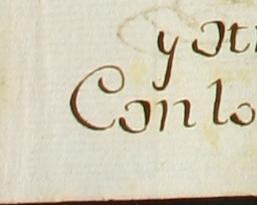 y ot
Con lo